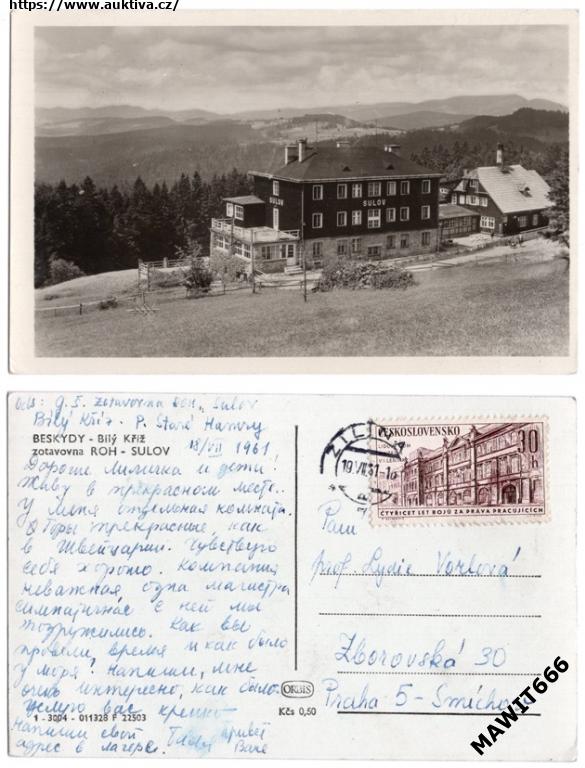 https://www.auktiva.cz/
SULOV
SULOV
Ods: G. Ž. zotavovna ROH, Sulov
Bílý Kříž - P. Staré Hamry
BESKYDY - Bílý Kříž
zotavovna ROH - SULOV
18/VII 1961
Дорогие Лиличка и дети!
Живу в прекрасном месте.
У меня отдельная комната.
Горы прекрасные как
в Швейцарии. Чувствую
себя хорошо. Компания
неважная, одна магистра
симпатичная с ней мы
подружились. Как вы
провели время и как было
у моря? Напиши, мне
очень интересно, как было.
Целую вас крепко
1 - 3004 - 011328 F 22503
Напиши свой
адрес в лагере. привет
Ване
ORBIS
Kčs 0,50
ŽILINA
19.VII.61
ČESKOSLOVENSKO
30 h
ČTYŘICET LET BOJŮ ZA PRÁVA PRACUJÍCÍCH
Paní
prof. Lydie Vorlová
Zborovská 30
Praha 5 - Smíchov
MAWIT666